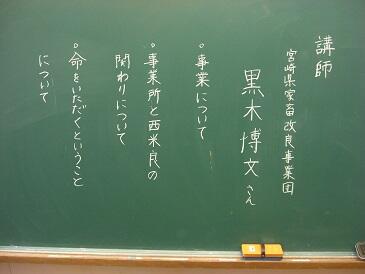 講師
宮崎県家畜改良事業団
黒木博文さん
。事業について
。事業所と西米良の
関わりについて
。命をいただくということ
について